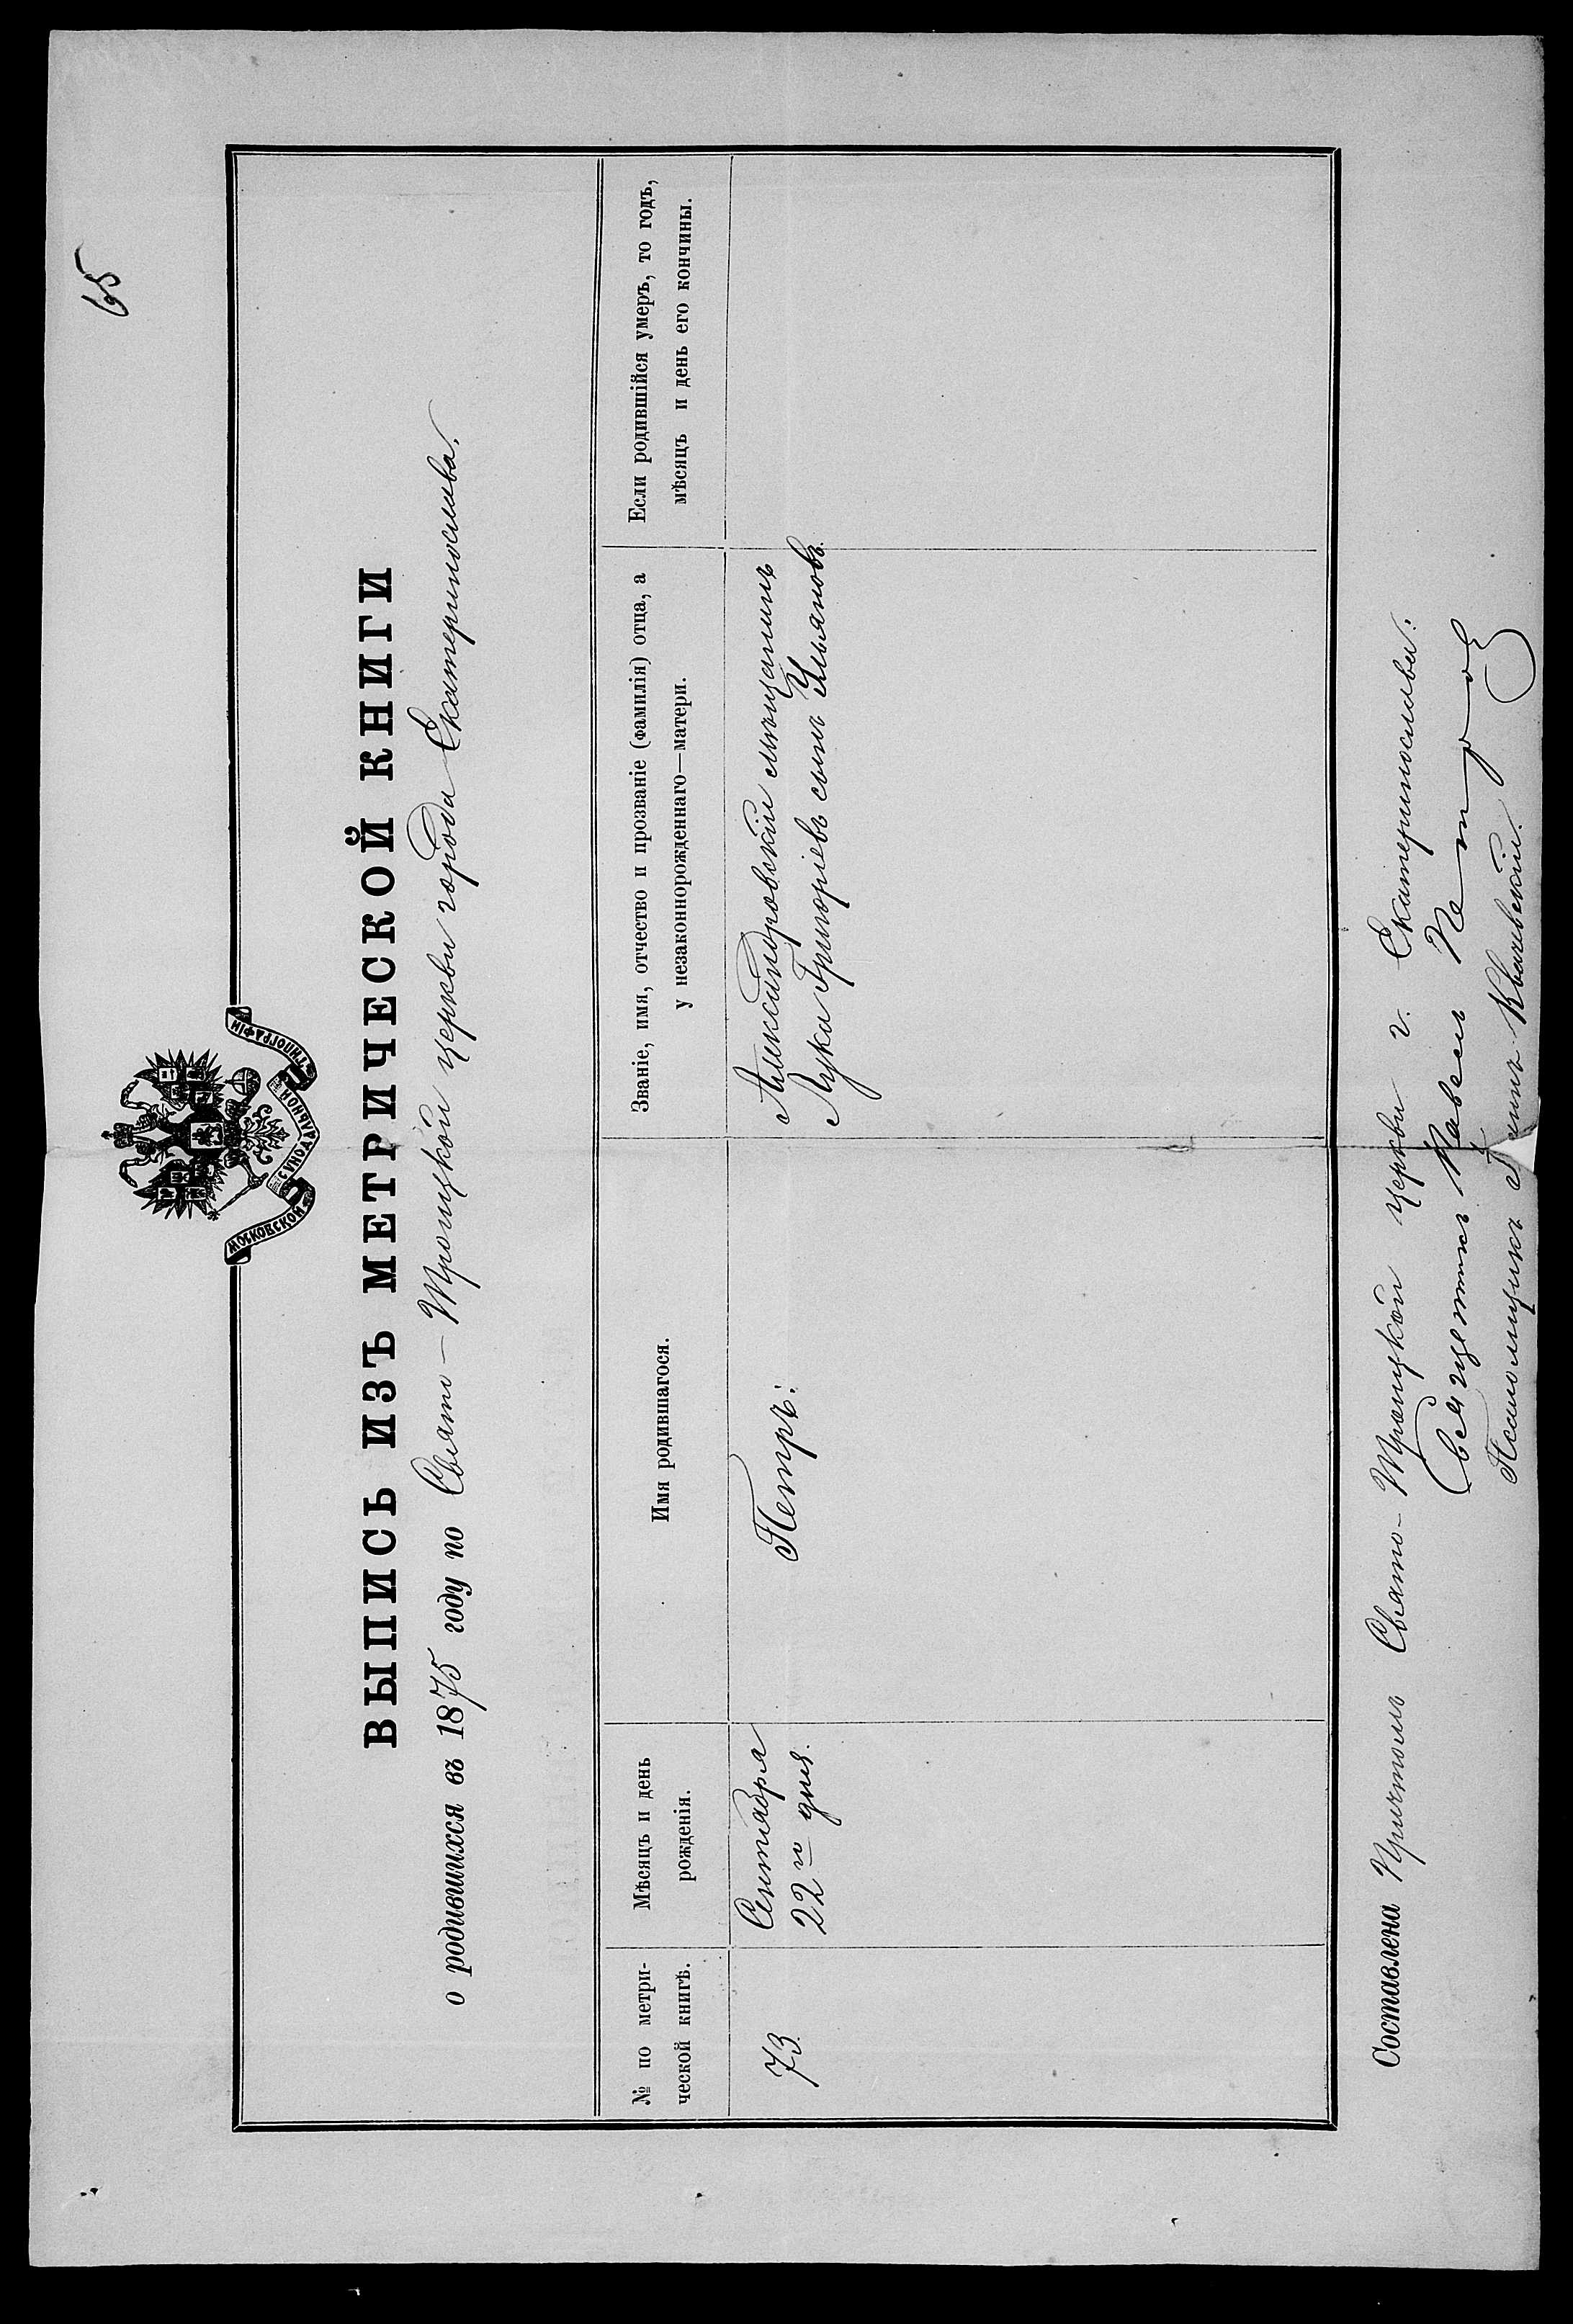 65
МОСКОВСКОЙ СИНОДАЛЬНОЙ ТИПОГРАФІИ
ВЫПИСЬ ИЗЪ МЕТРИЧЕСКОЙ КНИГИ
о родившихся въ 1875 году по Свято-Троицкой церкви города Екатеринослава.
№ по метри-
ческой книгѣ.
Мѣсяцъ и день
рожденія.
Имя родившагося.
Званіе, имя, отчество и прозваніе (фамилія) отца, а
у незаконнорожденнаго—матери.
Если родившійся умеръ, то годъ,
мѣсяцъ и день его кончины.
73.
Сентября
22го дня.
Петръ.
Александровскій мѣщанинъ
Лука Григоріевъ сынъ Ульяновъ.
Составлена Причтомъ Свято-Троицкой церкви г. Екатеринослава:
Священникъ Павелъ Петров
Псаломщикъ Квачевскій.